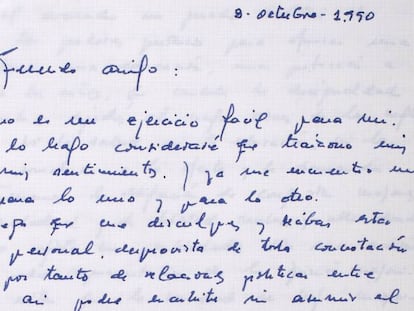 8. Octubre - 1.990
amigo :
no es un ejercicio fácil para mi.
lo hago consideraré que traiciono mis
mis sentimientos. Y ya me encuentro
para lo uno y para lo otro.
que me disculpes y recibas esta
personal, desprovista de toda connotación
por tanto de relaciones políticas entre
podré mi asumir el